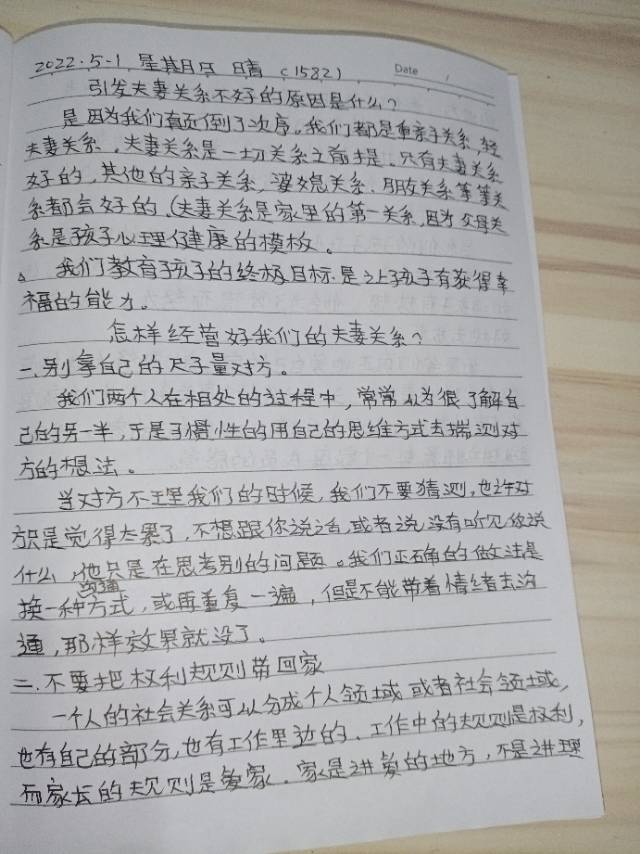 2022.5-1 星期日 晴 (1582) Date
引发夫妻关系不好的原因是什么?
是因为我们颠倒了次序。我们都是重亲子关系,轻
夫妻关系。夫妻关系是一切关系之前提。只有夫妻关系
好的,其他的亲子关系,婆媳关系.朋友关系等等关
系都会好的。(夫妻关系是家里的第一关系,因为父母关
系是孩子心理健康的模板。
、我们教育孩子的终极目标.是让孩子有获得幸
福的能力。
怎样经营好我们的夫妻关系?
一.别拿自己的尺子量对方。
我们两个人在相处的过程中,常常认为很了解自
己的另一半,于是习惯性的用自己的思维方式去揣测对
方的想法。
当对方不理我们的时候,我们不要猜测,也许对
方只是觉得太累了,不想跟你说话,或者说没有听见你说
什么,他只是在思考别的问题。我们正确的做法是
换一种沟通方式,或再重复一遍,但是不能带着情绪去沟
通,那样效果就没了。
二.不要把权利规则带回家
一个人的社会关系可以分成个人领域或者社会领域,
也有自己的部分,也有工作里边的.工作中的规则是权利,
而家长的规则是爱家.家是讲爱的地方,不是讲理